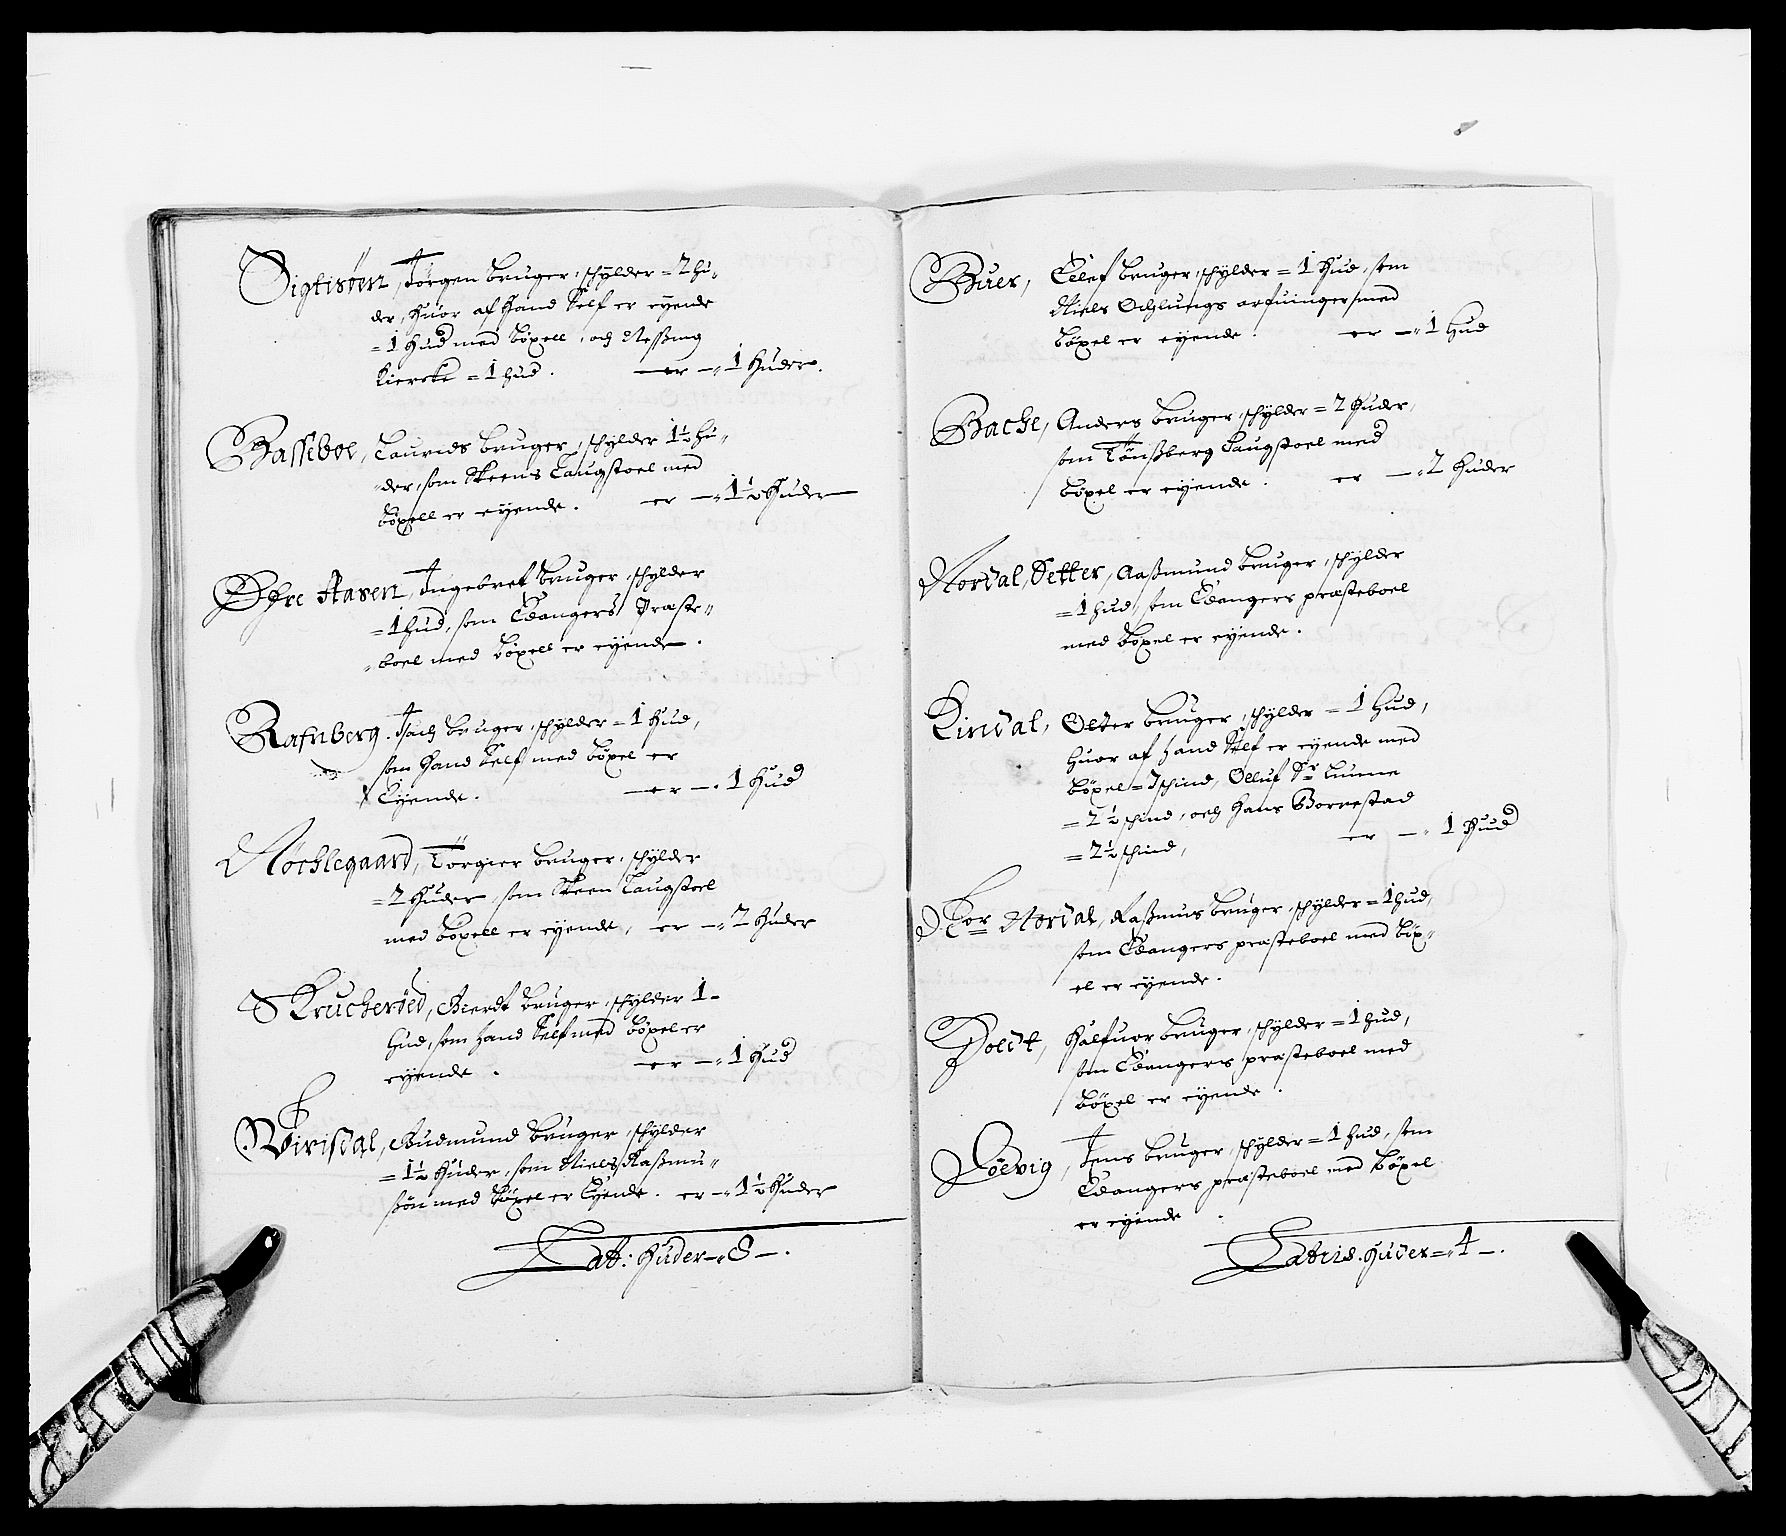 Sigtisøen, Jørgen bruger, schÿlder = 2 hu-
der, huor af hand self er eÿende
= 1 hud med böxell, och Nesßing
Kiercke = 1 hud. er — 1 Huder.
Basseboe, Laurids bruger, schÿlder 1½ hu-
der, som Skeens Laugstoel med
böxell er eÿende. er — 1½ Huder
Øfre Aasen, Ingebret bruger, schÿlder
= 1 hud, som Edangers Præste-
boel med böxell er eÿende.
Rafnberg. Isach bruger, schÿlder = 1 Hud,
som hand self med böxel er
Eÿende. er — 1 Hud
Nöchlegaard, Törgier bruger, schÿlder
= 2 Huder som Skeen Laugstoel
med böxell er eÿende, er — 2 Huder
Krucheröed, Gierdt bruger, schÿlder 1
hud, som hand self med böxel er
eÿende. er — 1 Hud
Wirisdal, Gudmund bruger, schÿlder
= 1½ Huder, som Niels Raßmu-
ßön med böxel er Eÿende. er — 1½ Huder
Latt: Huder — 8 —.
Buer, Ellef bruger, schÿlder = 1 Hud, som
Niels Ochlungs arfuinger med
böxel er eÿende. er — 1 Hud
Bache, Anders bruger, schÿlder = 2 Huder,
som Tönßberg Laugstoel med
böxel er eÿende. er — 2 Huder
Nordal, Setter, Aaßmund bruger, schÿlder
= 1 hud, som Edangers præsteboel
med böxel er eÿende.
Lindal, Peder bruger, schÿlder = 1 Hud,
huor af hand self er eÿende med
böxel = 7 schind, Olluf Sr Lunne
= 2½ schind, och Hans Bornestad
= 2½ schind, er — 1 Hud
Nordal, Raßmus bruger, schÿlder = 1 hud,
som Edangers præsteboel med böx-
el er eÿende.
Holdt, Halfuor bruger, schÿlder = 1 hud,
som Edangers præsteboel med
böxel er eÿende.
Löevig, Jens bruger, schÿlder = 1 hud, som
Edangers præsteboel med böxel
er eÿende.
Lateris. Huder = 4 —.